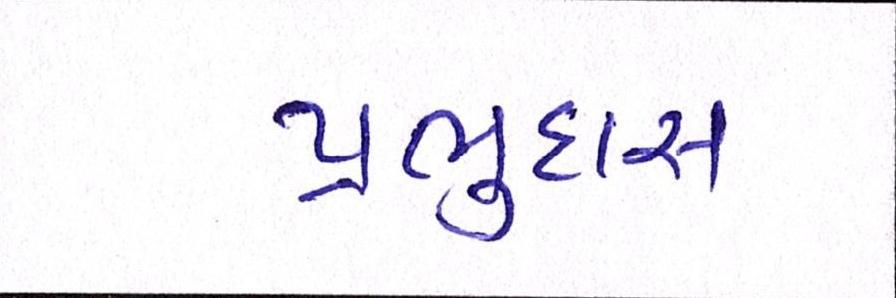 પ્રભુદાસ